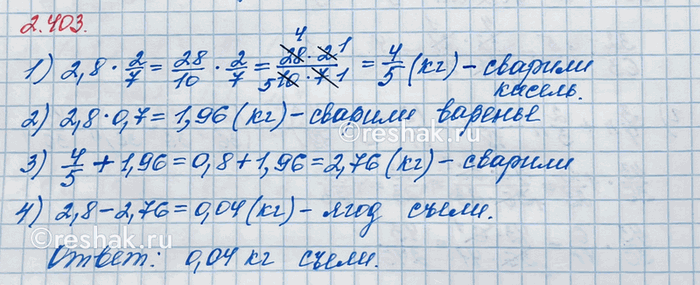 2.403.
1) 2,8 · 2/7 = 28/10 · 2/7 = (28 4 · 2 1)/(5 10 · 7 1) = 4/5 (кг) – сварили
кисель.
2) 2,8 · 0,7 = 1,96 (кг) – сварили варенье
3) 4/5 + 1,96 = 0,8 + 1,96 = 2,76 (кг) – сварили
4) 2,8 – 2,76 = 0,04 (кг) – ягод съели.
Ответ: 0,04 кг съели.
©reshak.ru